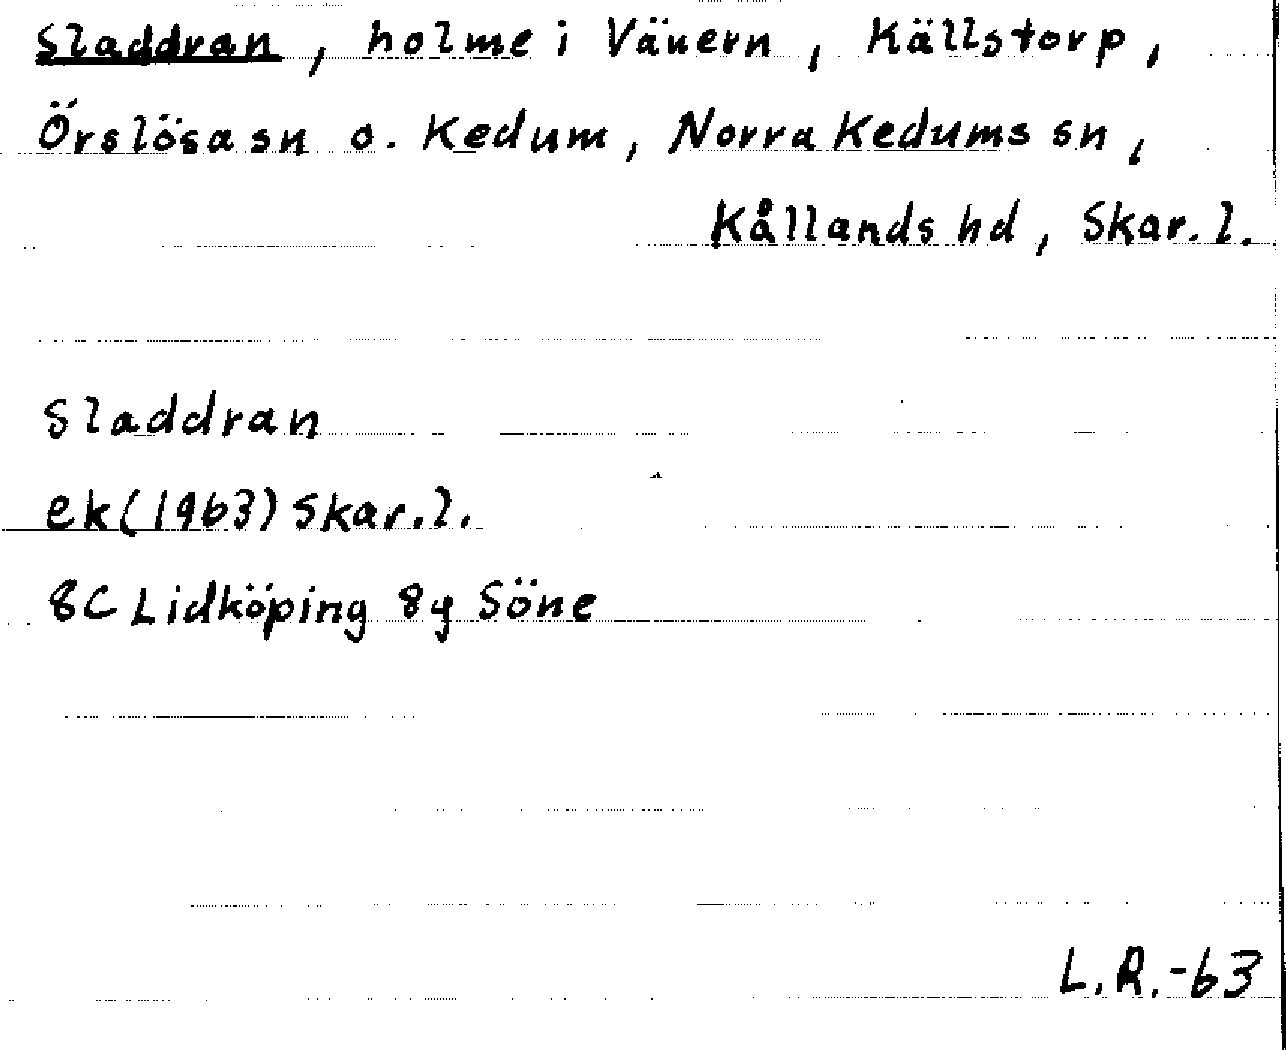 Sladdran, holme i Vänern, Källstorp,
Örslösa sn o. Kedum, Norra Kedums sn,
Kållands hd, Skar. l.
Sladdran
ek (1963) Skar. l.
8C Lidköping 8g Söne
L.R.-63